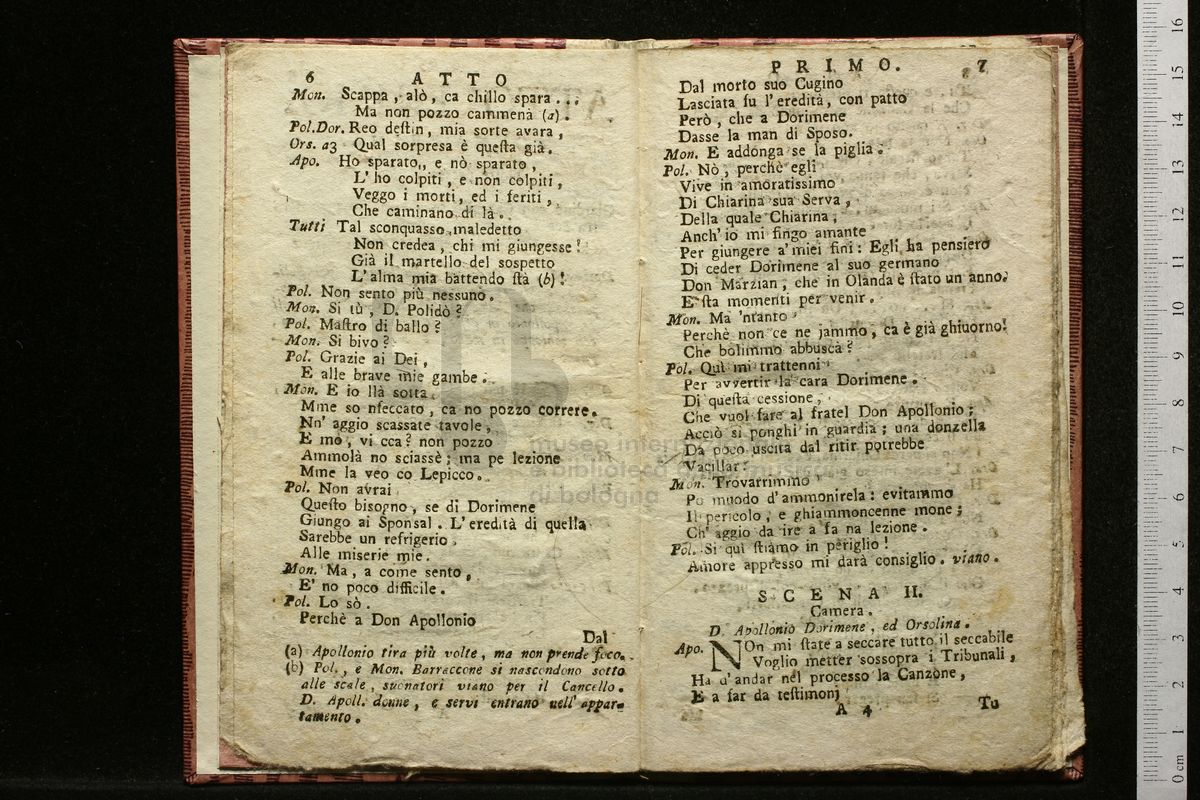 6 ATTO
Mon. Scappa, alò, ca chillo spara...
Ma non pozzo cammenà (a).
Pol.Dor. Reo deſtin, mia sorte avara,
Ors. a3 Qual sorpresa è queſta già.
Apo. Ho sparato,, e nò sparato,
L'ho colpiti, e non colpiti,
Veggo i morti, ed i feriti,
Che caminano di là.
Tutti Tal sconquasso maledetto
Non credea, chi mi giungesse!
Già il martello del sospetto
L'alma mia battendo ſtà (b)!
Pol. Non sento più nessuno.
Mon. Si tù, D. Polidò?
Pol. Maſtro di ballo?
Mon. Si bivo?
Pol. Grazie ai Dei,
E alle brave mie gambe.
Mon. E io llà sotta
Mme so nfeccato, ca no pozzo correre.
Nn' aggio scassate tavole,
E mo, vi cca? non pozzo
Ammolà no sciassè; ma pe lezione
Mme la veo co Lepicco.
Pol. Non avrai
Queſto bisogno, se di Dorimene
Giungo ai Sponsal. L'eredità di quella
Sarebbe un refrigerio
Alle miserie mie.
Mon. Ma, a come sento,
E' no poco difficile.
Pol. Lo sò.
Perchè a Don Apollonio
Dal
(a) Apollonio tira più volte, ma non prende foco.
(b) Pol., e Mon. Barraccone si nascondono sotto
alle scale, suonatori viano per il Cancello.
D. Apoll. donne, e servi entrano nell'appar-
tamento.
PRIMO. 7
Dal morto suo Cugino
Lasciata fu l'eredità, con patto
Però, che a Dorimene
Dasse la man di Sposo.
Mon. E addonga se la piglia.
Pol. Nò, perchè egli
Vive in amoratissimo
Di Chiarina sua Serva,
Della quale Chiarina,
Anch'io mi fingo amante
Per giungere a'miei fini: Egli ha pensiero
Di ceder Dorimene al suo germano
Don Marzian, che in Olanda è ſtato un anno.
E ſta momenti per venir.
Mon. Ma 'ntanto
Perchè non ce ne jammo, ca è già ghiuorno!
Che bolimmo abbuscà?
Pol. Quì mi trattenni
Per avvertir la cara Dorimene.
Di queſta cessione,
Che vuol fare al fratel Don Apollonio;
Acciò si ponghi in guardia; una donzella
Da poco uscita dal ritir potrebbe
Vacillar:
Mon. Trovarrimmo
Po muodo d'ammonirela: evitammo
Il pericolo, e ghiammoncenne mone;
Ch'aggio da ire a fa na lezione.
Pol. Si quì ſtiamo in periglio!
Amore appresso mi darà consiglio. viano.
SCENA II.
Camera.
D. Apollonio Dorimene, ed Orsolina.
Apo. NOn mi ſtate a seccare tutto il seccabile
Voglio metter sossopra i Tribunali,
Ha d'andar nel processo la Canzone,
E a far da teſtimonj
A 4 Tu
museo internazionale
e biblioteca della musica
di bologna
0 cm 1 2 3 4 5 6 7 8 9 10 11 12 13 14 15 16